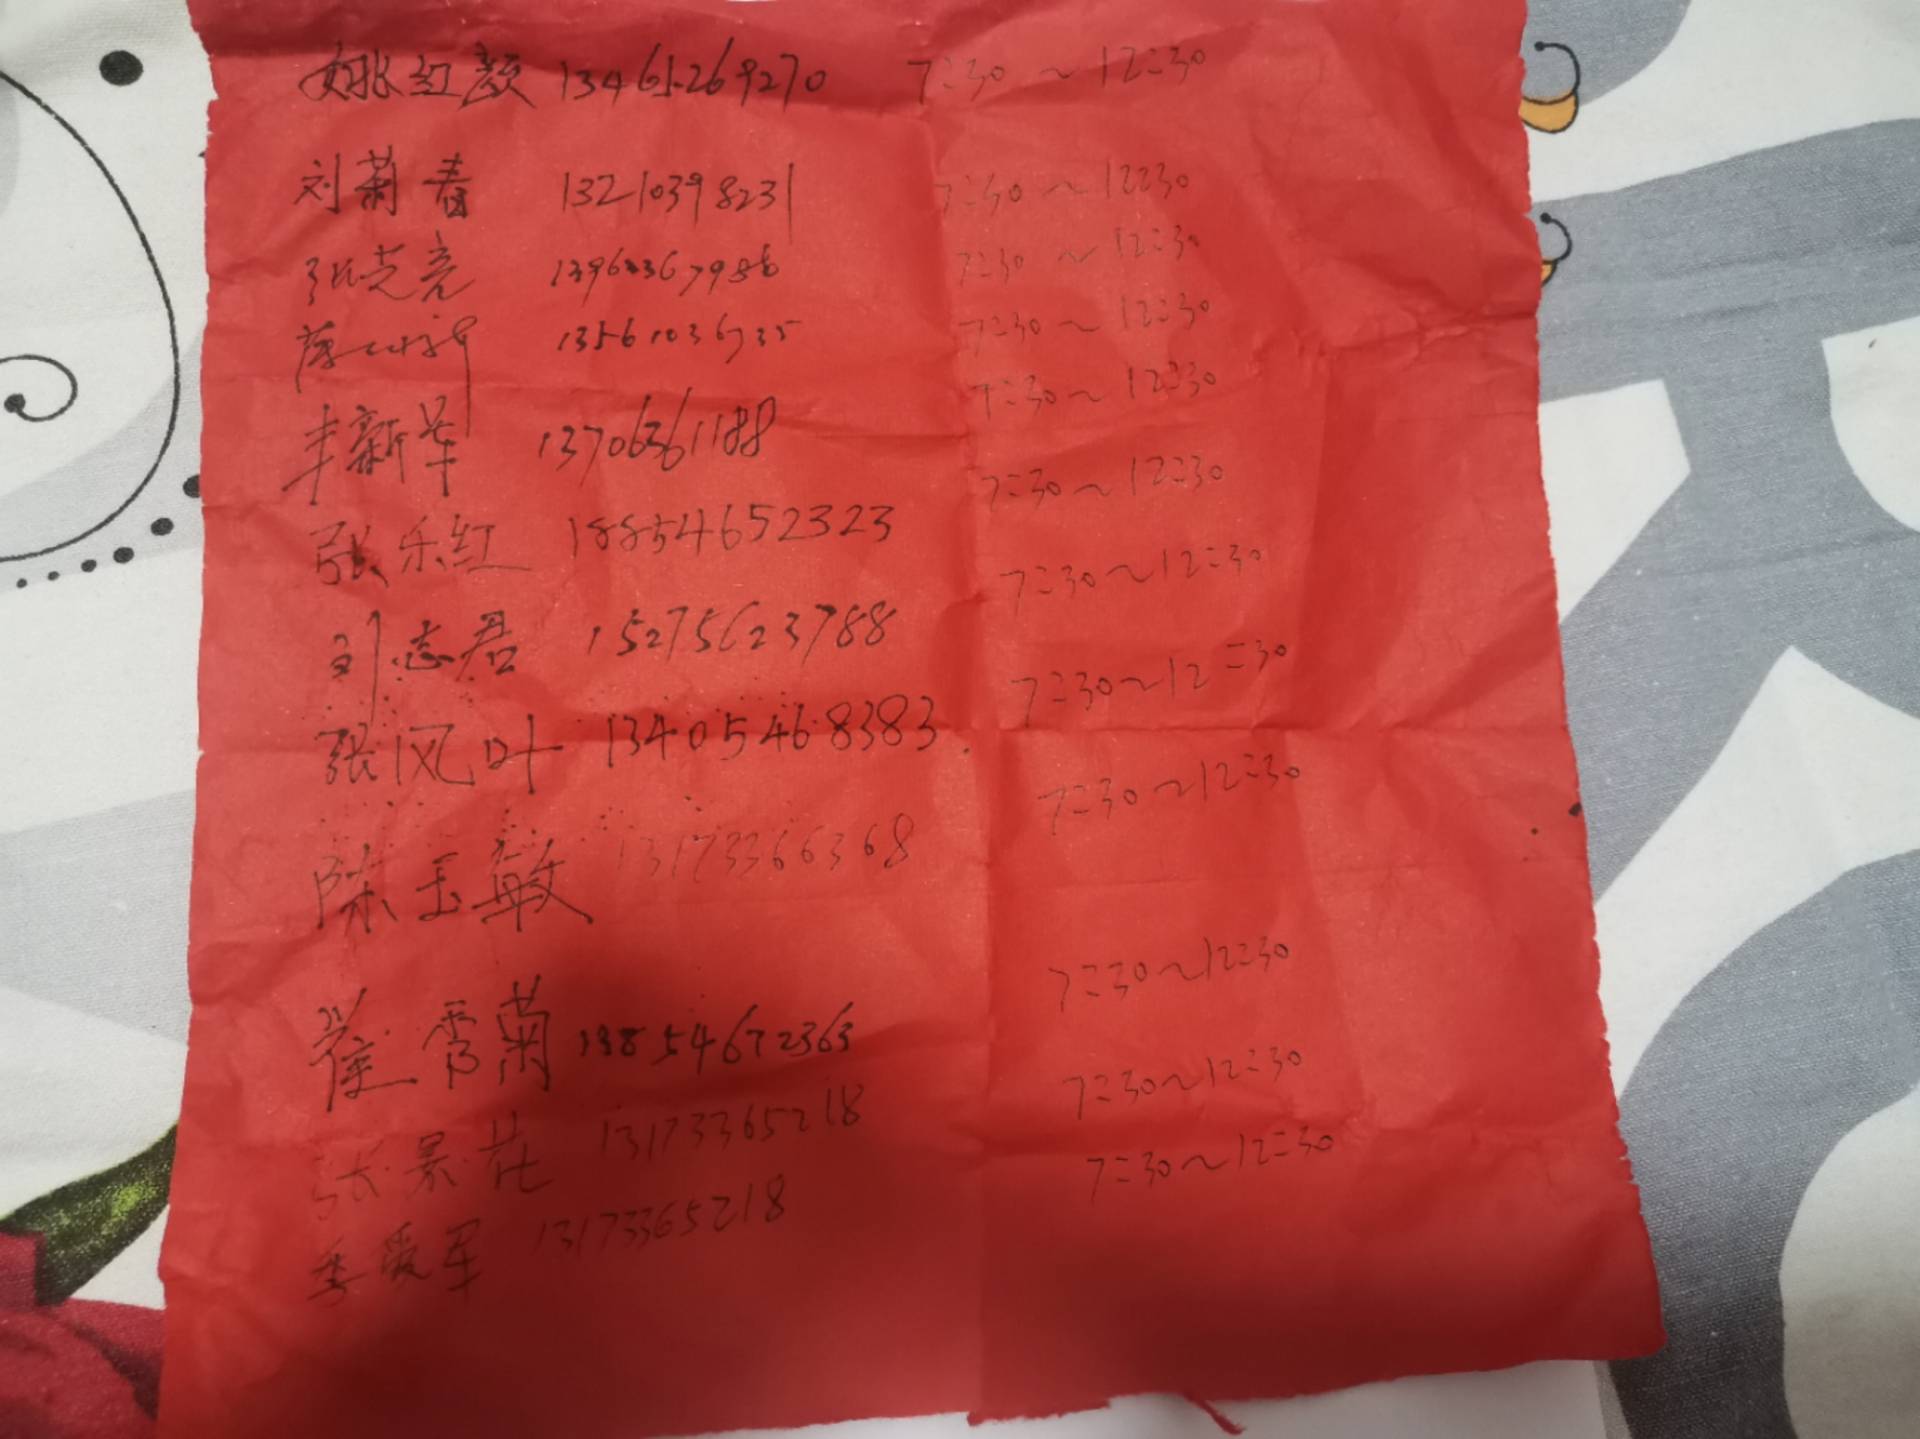 姚红颜 13465269270 7:30 ~ 12:30
刘菊春 13210398231 7:30 ~ 12:30
张芝亮 13963367986 7:30 ~ 12:30
薛 13561036735 7:30 ~ 12:30
丰新华 13706361188 7:30 ~ 12:30
张乐红 18854652323 7:30 ~ 12:30
刘志君 15275623788 7:30 ~ 12:30
张风叶 13405468383. 7:30 ~ 12:30
陈玉敏 13173366368 7:30 ~ 12:30
崔秀菊 13854672363 7:30 ~ 12:30
张景花 13173365218 7:30 ~ 12:30
季爱军 13173365218 7:30 ~ 12:30